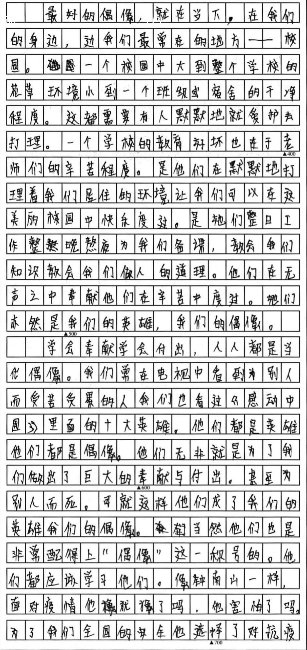 最好的偶像，就在当下。在我们
的身边，过我们最常在的地方——校
园。一个校园中大到整个学校的
范等环境小到一个班级或宿舍的干净
程度。这都需要有人默默地就爱护去
打理。一个学校的教育好坏也在于老
▲400
师们的辛苦程度。是他们在默默地打
理着我们居住的环境让我们可以在这
美丽校园中快乐度过。是她们整日工
作整整晚熬夜为我们备课，教会我们
知识教会我们做人的道理。他们在无
声之中奉献他们在辛苦中度过。她们
亦然是我们的英雄，我们的偶像。
▲500
学会奉献学会付出，人人都是当
代偶像。我们常在电视中看到为别人
而受苦受累的人我们也看过《感动中
国》里面的十大英雄。他们都是英雄
他们都是偶像。他们无非就是为了我
们做出了巨大的奉献与付出。甚至为
▲600
别人而死。可就这样他们成了我们的
英雄我们的偶像。当然他们也是
非常配得上“偶像”这一称号的。他
们都应该学习他们。像钟南山一样，
面对疫情他犹豫了吗，他害怕了吗。
为了我们全国的安全他选择了对抗疫
▲700